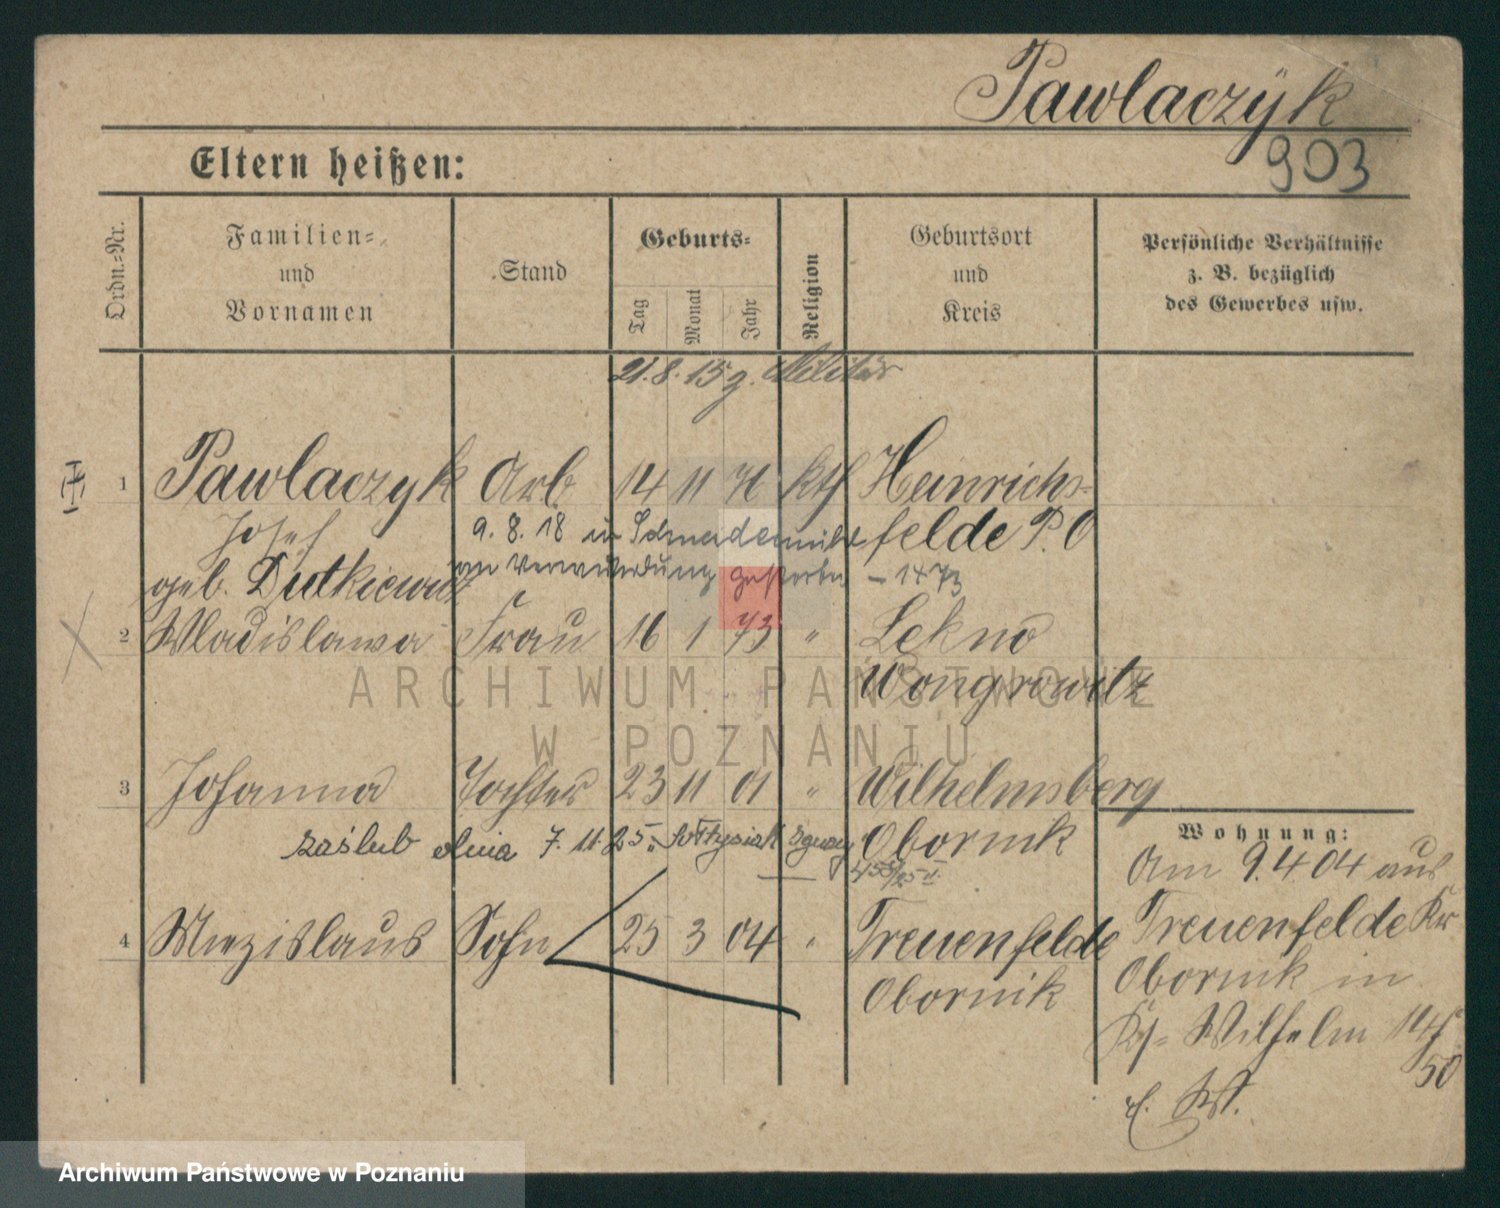 Pawlaczÿk
903
Eltern heißen:
Ordn.-Nr.
Familien-
und
Vornamen
Stand
Geburts-
Tag
Monat
Jahr
Religion
Geburtsort
und
Kreis
Persönliche Verhältnisse
z. B. bezüglich
des Gewerbes usw.
21. 8. 15 z. Militär
1 Pawlaczyk Arb 14 11 71 kth Heinrichs-
Josef felde P. O
9. 8. 18 in Schneidemühl
an Verwundung gestorben – 1473
geb. Dutkiewicz
2 Wladislawa Frau 16 1 73 " Lekno
Wongrowitz
ARCHIWUM PAŃSTWOWE
W POZNANIU
3 Johanna Tochter 23 11 01 " Wilhelmsberg
Obornik
zaślub dnia 7. 11. 25
4 Miezislaus Sohn 25 3 04 " Treuenfelde
Obornik
Wohnung:
Am 9. 4 04 aus
Treuenfelde Kr
Obornik in
Wilhelm
50
Archiwum Państwowe w Poznaniu